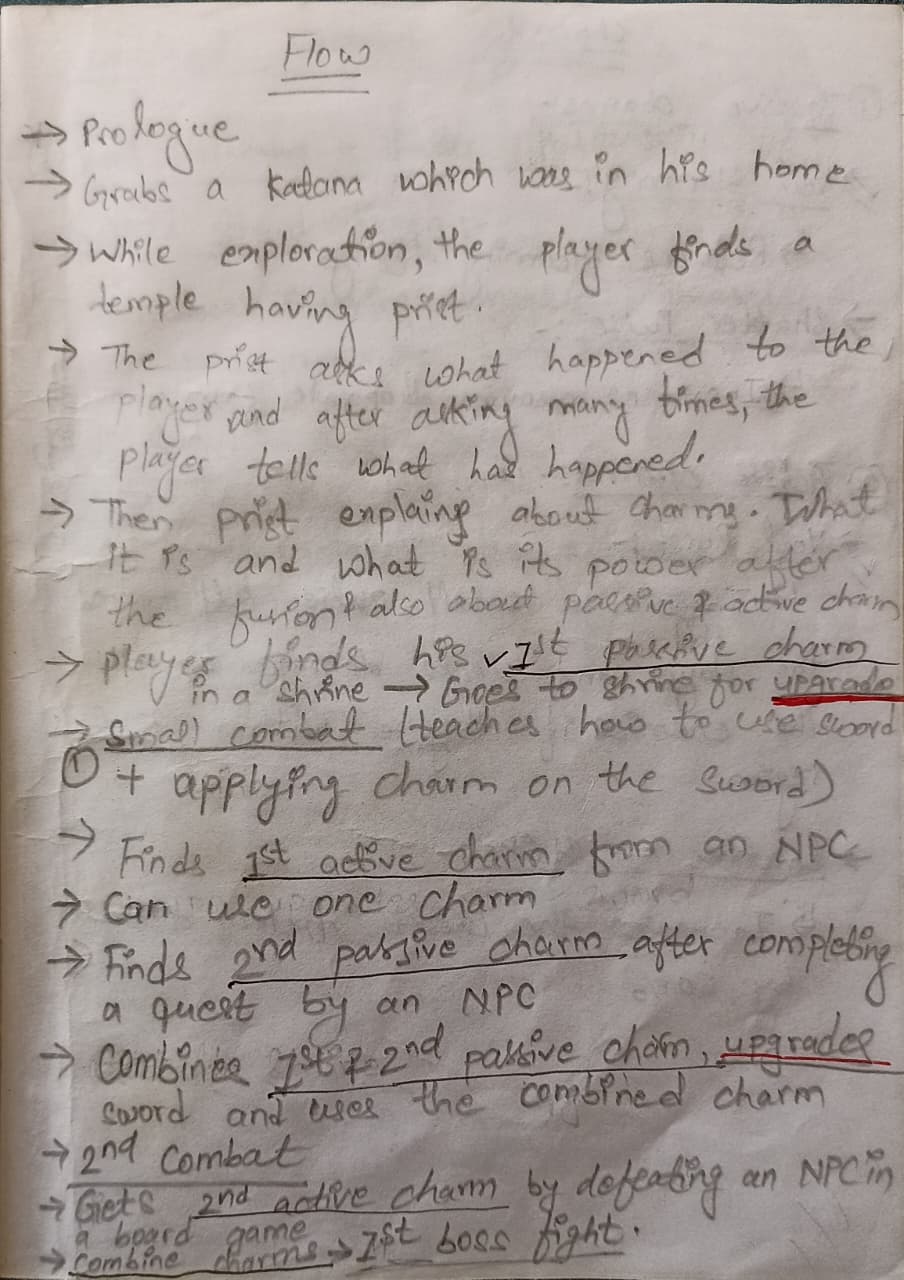 Flow
→ Prologue
→ Grabs a Katana which was in his home
→ While exploration, the player finds a
temple having prist.
→ The prist asks what happened to the
player and after asking many times, the
player tells what has happened.
→ Then prist explains about charms. What
it is and what is its power after
the fusion & also about passive & active charm
→ player finds his ✓1st passive charm
in a shrine → Goes to shrine for upgrade
→ Small combat (teaches how to use sword
① + applying charm on the sword)
→ Finds 1st active charm from an NPC
→ Can use one charm
→ Finds 2nd passive charm after completing
a quest by an NPC
→ Combines 1st & 2nd passive charm, upgrades
sword and uses the combined charm
→ 2nd Combat
→ Gets 2nd active charm by defeating an NPC in
a board game
→ Combine charms → 1st boss fight.